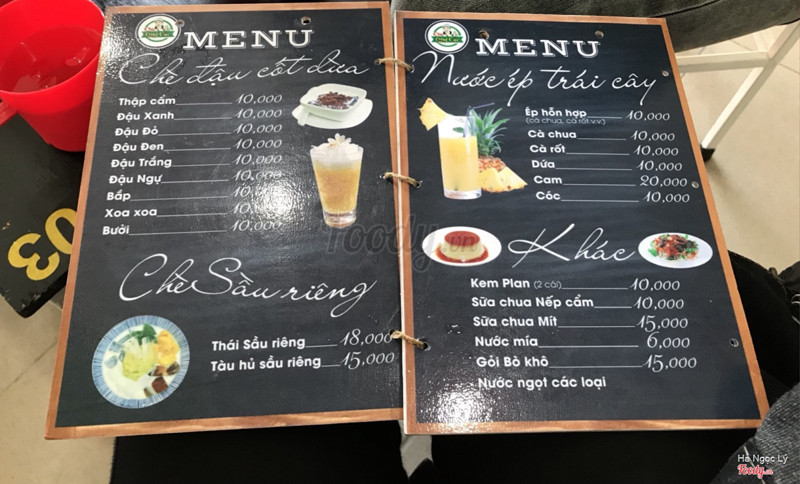 MENU
Chè đậu cốt dừa
Thập cẩm 10,000
Đậu Xanh 10,000
Đậu Đỏ 10,000
Đậu Đen 10,000
Đậu Trắng 10,000
Đậu Ngự 10,000
Bắp 10,000
Xoa xoa 10,000
Bưởi 10,000
Chè Sầu riêng
Thái Sầu riêng 18,000
Tàu hủ sầu riêng 15,000
MENU
Nước ép trái cây
Ép hỗn hợp 10,000
(cà chua, cà rốt.v.v.)
Cà chua 10,000
Cà rốt 10,000
Dứa 10,000
Cam 20,000
Cóc 10,000
Khác
Kem Plan (2 cái) 10,000
Sữa chua Nếp cẩm 10,000
Sữa chua Mít 15,000
Nước mía 6,000
Gỏi Bò khô 15,000
Nước ngọt các loại
03
foody.vn
Hà Ngọc Lý
Foody.vn